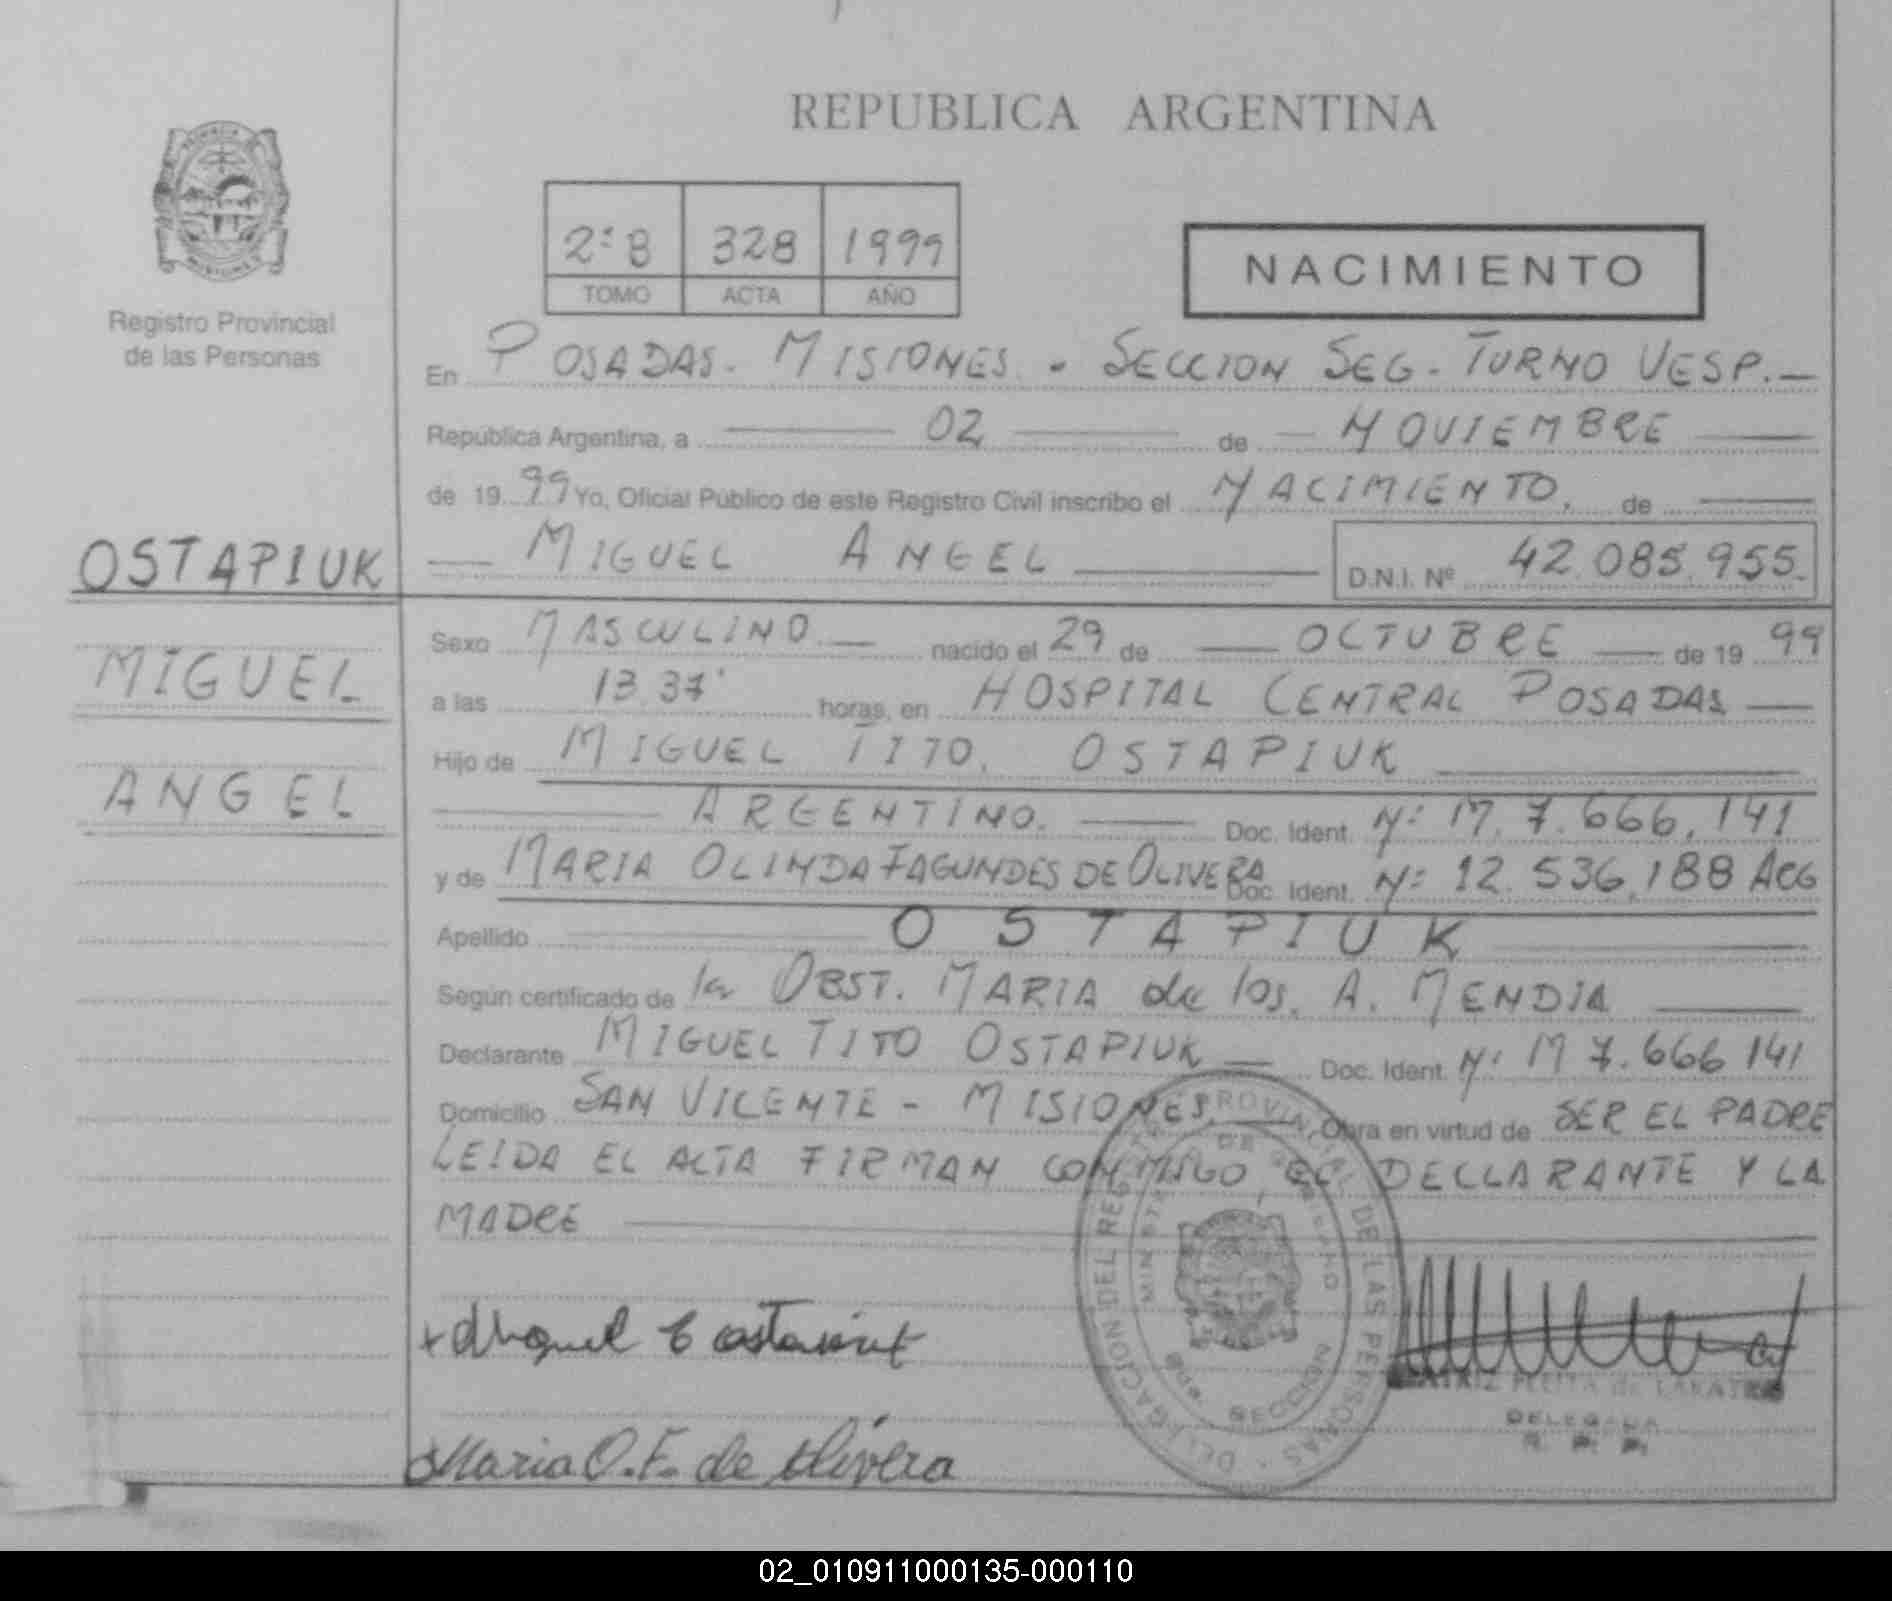 REPUBLICA ARGENTINA
2º 8 328 1999
TOMO ACTA AÑO
NACIMIENTO
Registro Provincial
de las Personas
En POSADAS - MISIONES - SECCION SEG - TURNO VESP. -
República Argentina, a 02 de NOVIEMBRE
de 19 99 Yo, Oficial Público de este Registro Civil inscribo el NACIMIENTO, de
OSTAPIUK
MIGUEL ANGEL
D.N.I. Nº 42.085.955.
MIGUEL
ANGEL
Sexo MASCULINO nacido el 29 de OCTUBRE de 19 99
a las 13.37' horas, en HOSPITAL CENTRAL POSADAS
Hijo de MIGUEL TITO. OSTAPIUK
ARGENTINO. Doc. Ident. Nº M. 7.666.141
y de MARIA OLINDA FAGUNDES DE OLIVERA Doc. Ident. Nº 12.536.188 ACG
Apellido OSTAPIUK
Según certificado de la OBST. MARIA de los. A. MENDIA
Declarante MIGUEL TITO OSTAPIUK Doc. Ident. Nº M 7.666 141
Domicilio SAN VICENTE - MISIONES, Obra en virtud de SER EL PADRE
LEIDA EL ACTA FIRMAN CONMIGO EL DECLARANTE Y LA
MADRE
DELEGACION DEL REGISTRO PROVINCIAL DE LAS PERSONAS
MINISTERIO DE GOBIERNO
SECCION
DELEGADA
R. P. P.
Maria O. F. de Olivera
02_010911000135-000110